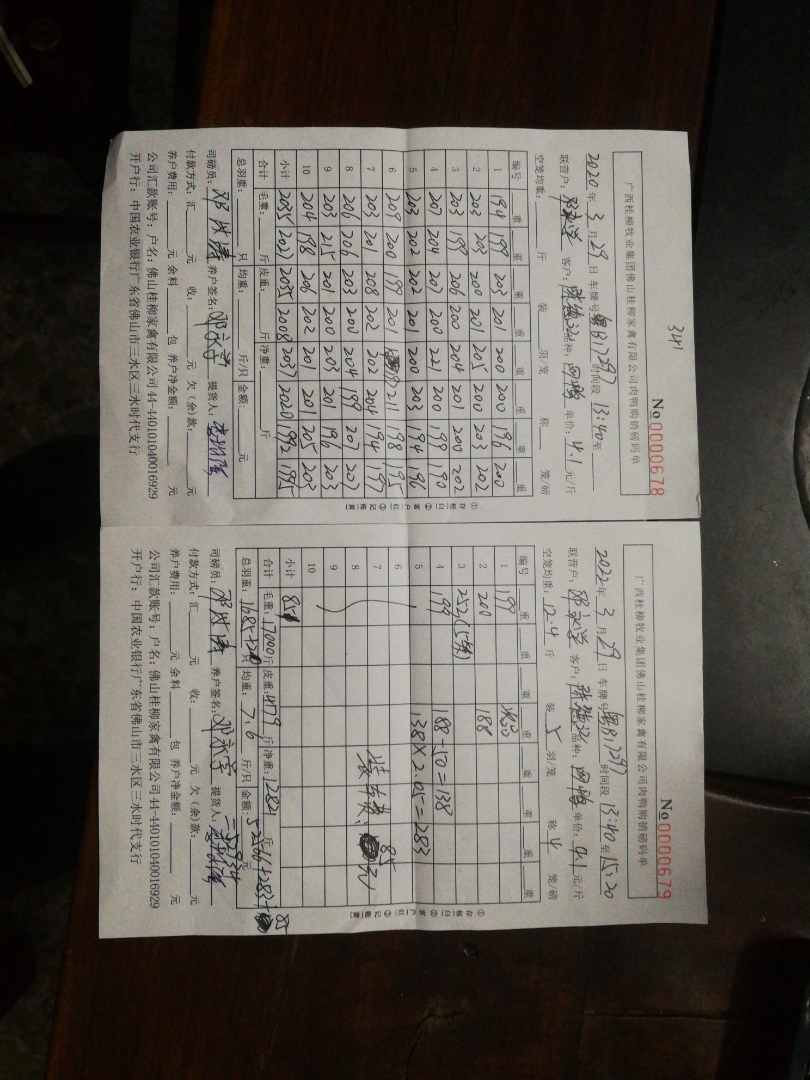 341
No 0000678
广西桂柳牧业集团佛山桂柳家禽有限公司肉鸭购销磅码单
2020 年 3 月 29 日 车牌号 粤B17297 时间段 13:40 至
联营户: 邓永学 客户: 品种: 四鸭 单价: 4.1 元/斤
空笼均重: 斤 装 羽/笼 称 笼/磅
编号 重 重 重 重 重 重 重 重
1 194 199 203 201 200 200 196 200
2 203 203 200 201 205 200 203 202
3 203 199 206 200 204 201 200 202
4 207 204 207 200 221 200 199 190
5 203 202 202 201 200 203 194 196
6 209 200 199 201 211 198 195
7 203 201 208 202 202 204 194 197
8 206 206 203 200 204 199 207 207
9 203 215 201 200 203 201 196 203
10 204 198 206 202 201 201 205 203
小计 2035 2027 2035 2008 2037 2020 1992 1995
合计 毛重: 斤 皮重: 斤 净重: 斤
总羽重: 只 均重: 斤/只 金额: 元
司磅员: 邓 养户签名: 邓永学 提货人:
付款方式: 汇 元 收: 元 欠(余)款: 元
养户费用: 元 余料 包 养户净金额: 元
公司汇款账号: 户名: 佛山桂柳家禽有限公司 44-440101040016929
开户行: 中国农业银行广东省佛山市三水区三水时代支行
①存根(白) ②客户(红) ③记账(黄)
No 0000679
广西桂柳牧业集团佛山桂柳家禽有限公司肉鸭购销磅码单
2022 年 3 月 29 日 车牌号 粤B17297 时间段 13:40 至 15:20
联营户: 邓永学 客户: 品种: 四鸭 单价: 4.1 元/斤
空笼均重: 12.4 斤 装 羽/笼 称 4 笼/磅
编号 重 重 重 重 重 重 重 重
1 199
2 200 188
3 252(5笼)
4 199 188-50=138
5 138×2.05=283
6
7 装车费: 85元
8
9
10
小计 850
合计 毛重: 17000 斤 皮重: 4179 斤 净重: 12821 斤
总羽重: 只 均重: 7.6 斤/只 金额: 52566+283+85 元
=52934
司磅员: 邓 养户签名: 邓永学 提货人:
付款方式: 汇 元 收: 元 欠(余)款: 元
养户费用: 元 余料 包 养户净金额: 元
公司汇款账号: 户名: 佛山桂柳家禽有限公司 44-440101040016929
开户行: 中国农业银行广东省佛山市三水区三水时代支行
①存根(白) ②客户(红) ③记账(黄)